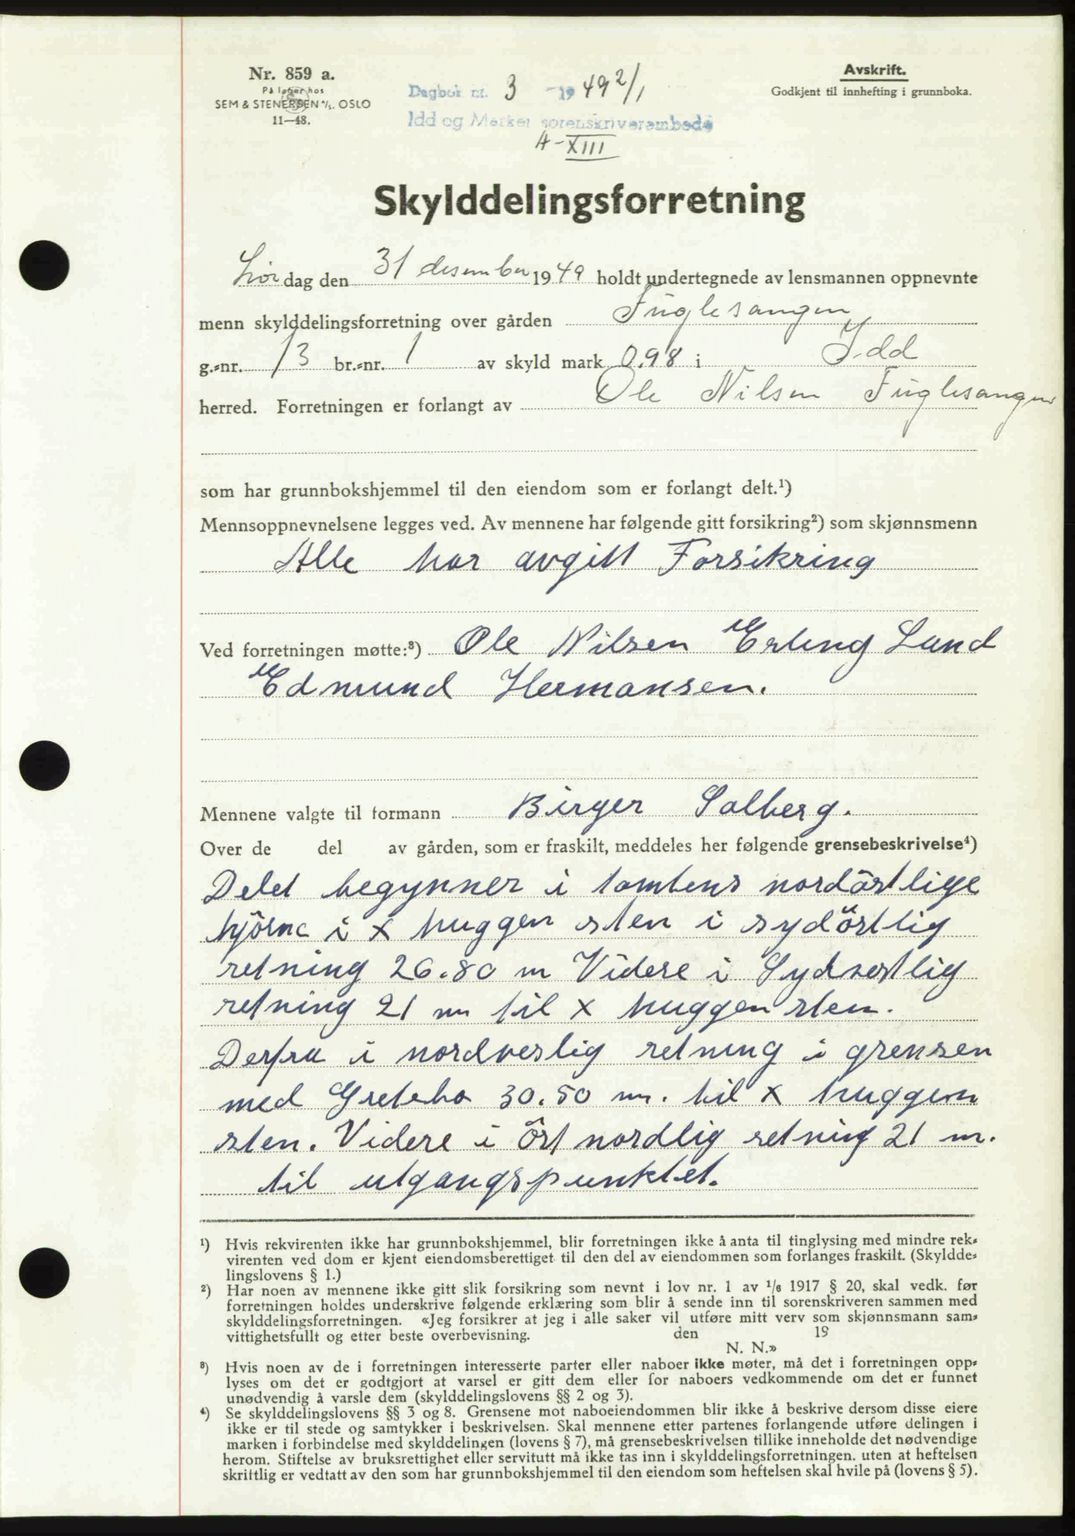 Nr. 859 a.
På lager hos
SEM & STENERSEN A/S. OSLO
11—48.
Dagbok nr. 3 - 1949 2/1
Idd og Marker sorenskriverembede
A-XIII
Avskrift.
Godkjent til innhefting i grunnboka.
Skylddelingsforretning
Lørdag den 31 desember 1949 holdt undertegnede av lensmannen oppnevnte
menn skylddelingsforretning over gården Fuglesangen
g.-nr. 13 br.-nr. 1 av skyld mark 0.98 i Idd
herred. Forretningen er forlangt av Ole Nilsen Fuglesangen
som har grunnbokshjemmel til den eiendom som er forlangt delt.¹)
Mennsoppnevnelsene legges ved. Av mennene har følgende gitt forsikring²) som skjønnsmenn
Alle har avgitt Forsikring
Ved forretningen møtte:³) Ole Nilsen Erling Lund
Edmund Hermansen.
Mennene valgte til formann Birger Solberg.
Over de del av gården, som er fraskilt, meddeles her følgende grensebeskrivelse⁴)
Delet begynner i tomtens nordöstlige
hjörne i x huggen sten i sydöstlig
retning 26.80 m Videre i Sydvestlig
retning 21 m til x huggen sten.
Derfra i nordveslig retning i grensen
med Gretebo 30.50 m. til x huggen
sten. Videre i öst nordlig retning 21 m.
til utgangspunktet.
¹) Hvis rekvirenten ikke har grunnbokshjemmel, blir forretningen ikke å anta til tinglysing med mindre rek-
virenten ved dom er kjent eiendomsberettiget til den del av eiendommen som forlanges fraskilt. (Skyldde-
lingslovens § 1.)
²) Har noen av mennene ikke gitt slik forsikring som nevnt i lov nr. 1 av 1/6 1917 § 20, skal vedk. før
forretningen holdes underskrive følgende erklæring som blir å sende inn til sorenskriveren sammen med
skylddelingsforretningen. «Jeg forsikrer at jeg i alle saker vil utføre mitt verv som skjønnsmann sam-
vittighetsfullt og etter beste overbevisning. den 19
N. N.»
³) Hvis noen av de i forretningen interesserte parter eller naboer ikke møter, må det i forretningen opp-
lyses om det er godtgjort at varsel er gitt dem eller for naboers vedkommende om det er funnet
unødvendig å varsle dem (skylddelingslovens §§ 2 og 3).
⁴) Se skylddelingslovens §§ 3 og 8. Grensene mot naboeiendommen blir ikke å beskrive dersom disse eiere
ikke er til stede og samtykker i beskrivelsen. Skal mennene etter partenes forlangende utføre delingen i
marken i forbindelse med skylddelingen (lovens § 7), må grensebeskrivelsen tillike inneholde det nødvendige
herom. Stiftelse av bruksrettighet eller servitutt må ikke tas inn i skylddelingsforretningen, uten at heftelsen
skriftlig er vedtatt av den som har grunnbokshjemmel til den eiendom som heftelsen skal hvile på (lovens § 5).